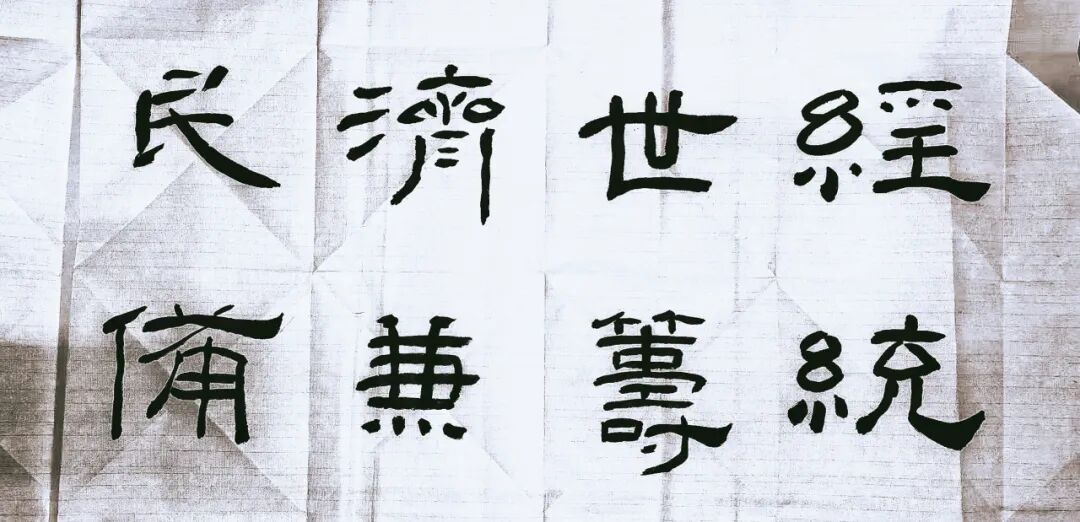 經世濟民
統籌兼備